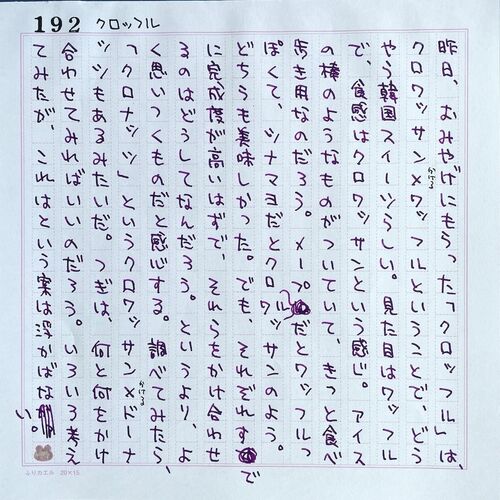 192 クロッフル
昨日、おみやげにもらった「クロッフル」は、
クロワッサン×ワッフルということで、どう
かける
やら韓国スイーツらしい。見た目はワッフル
で、食感はクロワッサンという感じ。アイス
の棒のようなものがついていて、きっと食べ
歩き用なのだろう。メープルだとワッフルっ
ぽくて、ツナマヨだとクロワッサンのよう。
どちらも美味しかった。でも、それぞれすで
に完成度が高いはずで、それらをかけ合わせ
るのはどうしてなんだろう。というより、よ
く思いつくものだと感心する。調べてみたら、
「クロナッツ」というクロワッサン×ドーナ
かける
ッツもあるみたいだ。つぎは、何と何をかけ
合わせてみればいいのだろう。いろいろ考え
てみたが、これはという案は浮かばない。
ふりカエル 20×15